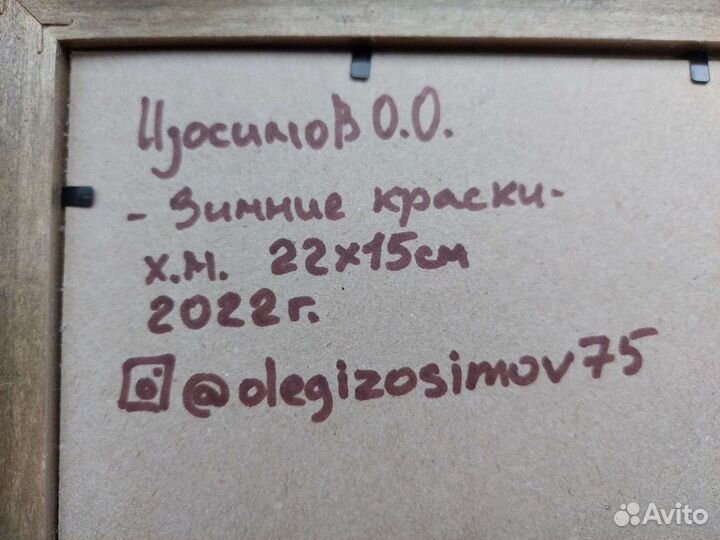 Изосимов О.О.
- Зимние краски-
х.м. 22х15см
2022г.
@olegizosimov75
Avito